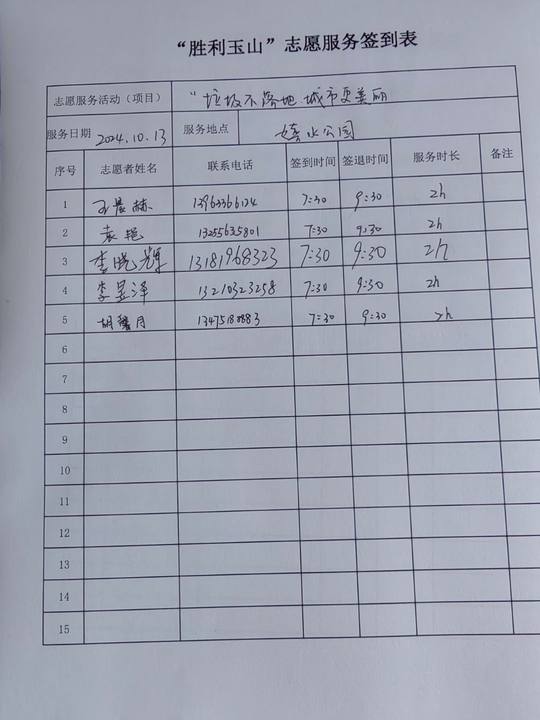 “胜利玉山”志愿服务签到表
志愿服务活动（项目） “垃圾不落地 城市更美丽
服务日期 2024.10.13 服务地点 嬉水公园
序号 志愿者姓名 联系电话 签到时间 签退时间 服务时长 备注
1 王晨赫 13963366134 7:30 9:30 2h
2 袁艳 13255635801 7:30 9:30 2h
3 李晓辉 13181968323 7:30 9:30 2h
4 李昱泽 13210323258 7:30 9:30 2h
5 胡馨月 13475180883 7:30 9:30 2h
6
7
8
9
10
11
12
13
14
15